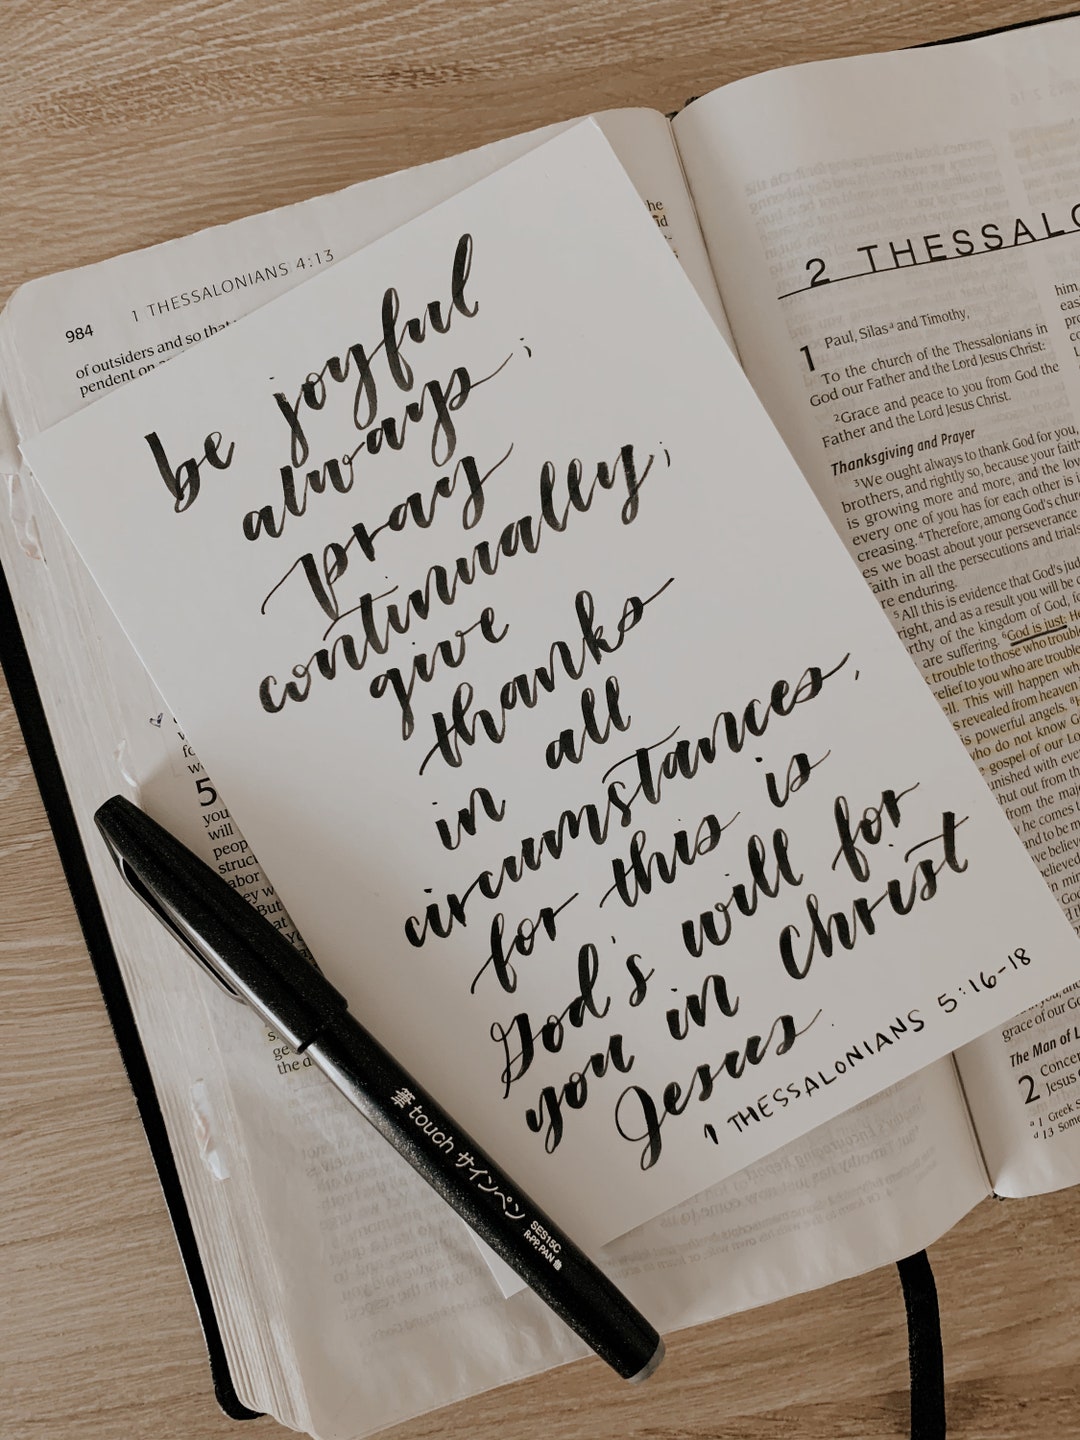 984
1 THESSALONIANS 4:13
of outsiders and so that
pendent on
be joyful
always;
pray
continually;
give
thanks
in all
circumstances,
for this is
God's will for
you in Christ
Jesus.
1 THESSALONIANS 5:16-18
5
you
will
peop
struc
But
ge
the d
筆touch サインペン
SES15C
R-PP,PAN
2 THESSALO
1 Paul, Silasᵃ and Timothy,
To the church of the Thessalonians in
God our Father and the Lord Jesus Christ:
²Grace and peace to you from God the
Father and the Lord Jesus Christ.
Thanksgiving and Prayer
³We ought always to thank God for you,
brothers, and rightly so, because your faith
is growing more and more, and the lov
every one of you has for each other is i
creasing. ⁴Therefore, among God's churc
es we boast about your perseverance
faith in all the persecutions and trials
re enduring.
⁵All this is evidence that God's jud
right, and as a result you will be c
rthy of the kingdom of God, fo
are suffering. ⁶God is just: He
trouble to those who troubl
relief to you who are trouble
ell. This will happen wh
s revealed from heaven
is powerful angels.
who do not know G
gospel of our Lo
unished with eve
hut out from th
from the maje
he comes t
and to be m
ve believe
grace of our Go
The Man of L
2 Concer
Jesus
ᵃ 1 Greek S
ᵈ 13 Some
him
eas
pro